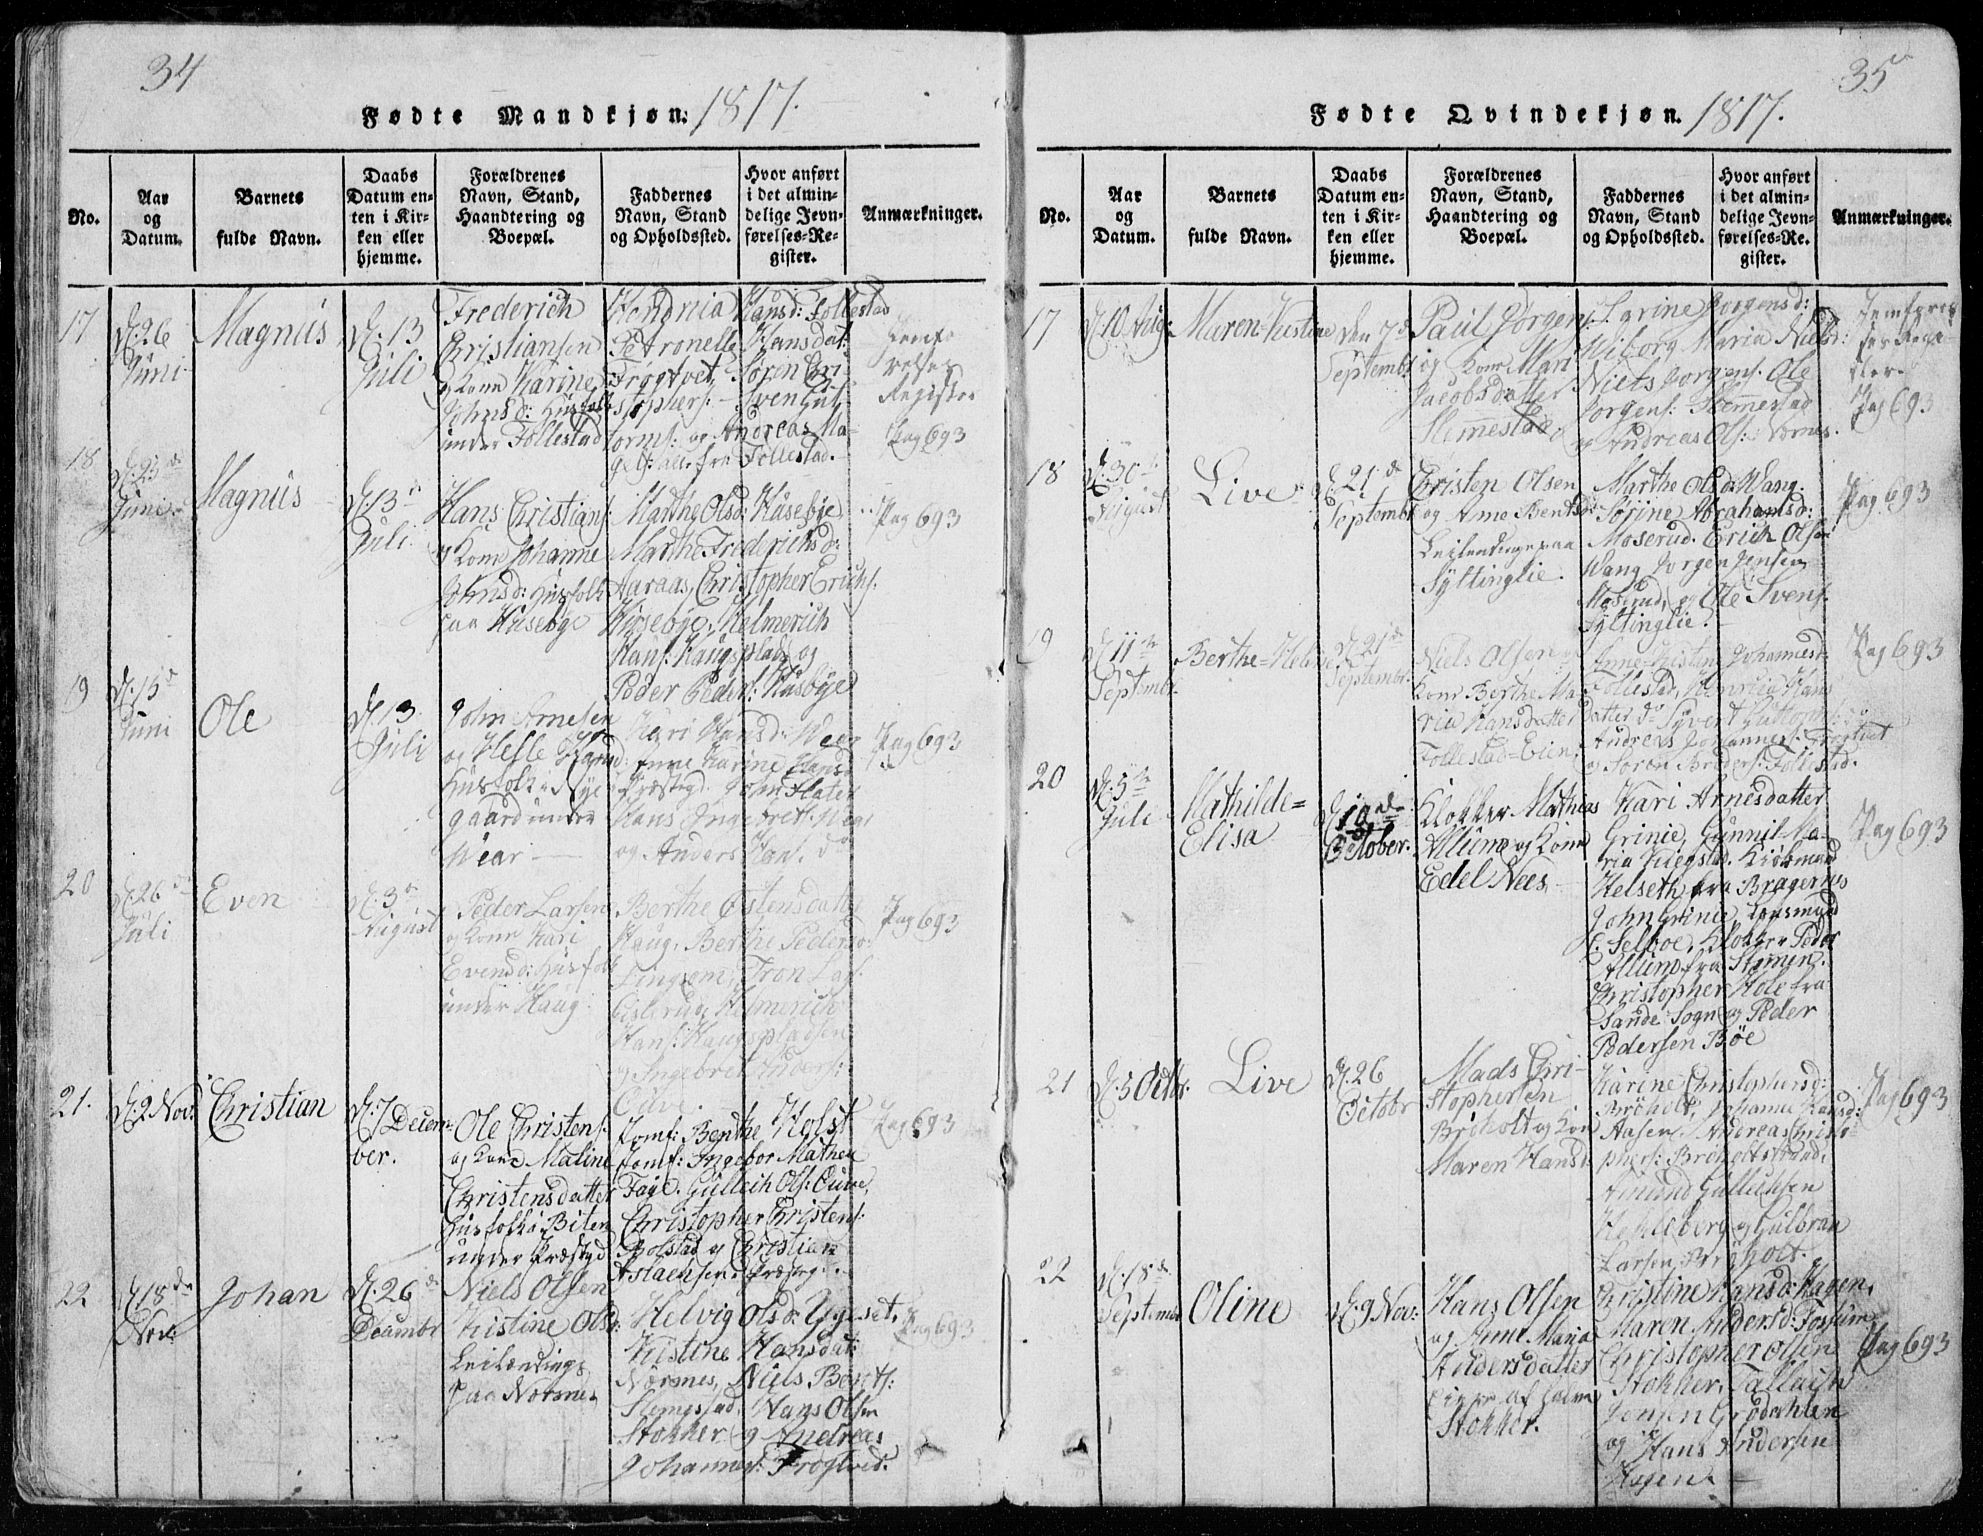 34
Fødte Mandkjøn. 1817.
No.
Aar og Datum.
Barnets fulde Navn.
Daabs Datum enten i Kirken eller hjemme.
Forældrenes Navn, Stand, Haandtering og Boepæl.
Faddernes Navn, Stand og Opholdssted.
Hvor anført i det almindelige Jevnførelses-Register.
Anmærkninger.
17
D. 26 Juni
Magnus
D. 13 Juli
Frederich
Christiansen
og Kone Karine
Johnsd: Husfolk
under Follestad
Hansd: Follestad
Petronelle Hansdat:
Frogtvet, Søren Chri-
stophers: Sven Gut-
torms: og Andreas Ma-
gels: alle fra Follestad.
Jemfø
relses
Register
Pag 693
18
D. 23de Juni
Magnus
D. 13de Juli
Hans Christians:
og Kone Johanne
Johnsd: Husfolk
paa Husebye
Marthe Olsd: Husebye
Marthe Frederichsd:
Aaraas, Christopher Erichs:
Husebye, Helmerich
Hans: Haugsplads og
Peder Peders: Husbye
Pag 693
19
D. 15de Juni
Ole
D. 13 Juli
John Arnesen
og Helle
Husfolk i Nye-
gaard under
Wear
Kari Hansd: Wear
Anne Karine Hansd
Præstegd. John Flater
Hans Ingebrets: Wear
og Anders Han. do
Pag 693
20
D. 26de Juli
Even
D. 3de August
Peder Larsen
og Kone Kari
Evensd: Husfolk
under Haug
Berthe Østensdatter
Haug, Berthe Pedersd:
Tron Lars:
Helmerich
Hans: Haugspladsen
og Ingebret Anders:
Cuve.
Pag 693
21.
D. 2 Nov:
Christian
D. 7 Decem-
ber.
Ole Christens:
og Kone Maline
Christensdatter
Husfolk i Biten
under Præstgd
Jomf: Benthe Holst
Jomf: Ingebor Mathea
Faye. Gulleich Ols: Cuve,
Christopher Christens:
Bolstad og Christian
Aslaksen Præstg:
Pag 693
22
D. 18de Nov:
Johan
D. 26de Decembr
Niels Olsen
Kistine Olsd:
Leilændinge
paa Nærsnes
Helvig Olsd: Ygeset,
Kistine Hansdat:
Nærsnes, Niels Bents:
Slemestad, Hans Olsen
Stokker og Andreas
Johannes: Frogtved.
Pag 693
35
Fødte Qvindekjøn. 1817.
No.
Aar og Datum.
Barnets fulde Navn.
Daabs Datum enten i Kirken eller hjemme.
Forældrenes Navn, Stand, Haandtering og Boepæl.
Faddernes Navn, Stand og Opholdssted.
Hvor anført i det almindelige Jevnførelses-Register.
Anmærkninger.
17
D. 10 Aug:
Maren-Kistine
den 7de Septembr
Paul Jørgens:
og Kone Mari
Jacobsdatter
Slemmestad
Larine Jorgensd:
Wiborg Maria Nielsd:
Niels Jorgens: Ole
Jorgens: Slemmestad
og Andreas Ols: Nærnes.
Pag 693
18
D. 30te August
Live
D. 21de Septembr
Christen Olsen
og Anne Bentsd
Leilendinge paa
Syltinglie.
Marthe Olsd: Wang:
Sørine Abrahamsd:
Moserud. Erich Olsen
Wang Jorgen Jensen
Moserud, og Ole Svens:
Syltinglie.
Pag 693
19
D. 11te Septembr
Berthe-Helene
D. 21de Septembr
Niels Olsen og
Kone Berthe Ma-
ria Hansdatter
Follestad-Eien:
Anne-Kistine Johannesd:
Follestad, Henricia Hans
datter do Syvert Guttorms: do
Andreas Johannes: Frogtvet
og Søren Broders: Follestad.
Pag 693
20
D. 5te Juli
Mathilde=
Elisa
D. 10de October.
Klokker Mathias
Allum og Kone
Edel Nees
Kari Arnesdatter
Grinie, Gunnil Ma-
ria Kiøbmand
Helseth fra Bragernes
John Grinie, Kiøbmand
Selboe, Klokker Peder
Allum fra Strømen.
Christopher Hole fra
Sande Sogn og Peder
Pedersen Bøe
Pag 693
21
D. 5 Octbr.
Live
D. 26 Octobr
Mads Chri-
stophersen
Brøholt og Kone
Maren Hansd
Karine Christophersd:
Brøholt, Johanne Hansd:
Aasen, Andreas Christo-
phers: Brøholtstrand,
Amund Gullichsen
Hekleberg og Gulbran
Larsen Brøholt.
Pag 693
22
D. 18de Septembr
Oline
D. 9 Nov:
Hans Olsen
og Anne Maria
Andersdatter
Eiere af halve
Stokker.
Christine Hansd: Hagen,
Maren Andersd: Fossum
Christopher Olsen
Stokker, Tallach
Jensen Grødahlen
og Hans Andersen
Hagen.
Pag 693